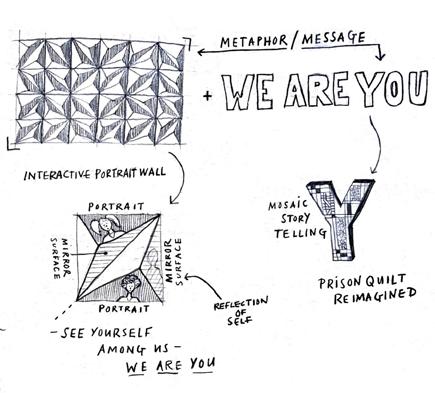 METAPHOR / MESSAGE
+ WE ARE YOU
INTERACTIVE PORTRAIT WALL
PORTRAIT
MIRROR
SURFACE
MIRROR
SURFACE
PORTRAIT
REFLECTION
OF
SELF
- SEE YOURSELF
AMONG US -
WE ARE YOU
MOSAIC
STORY
TELLING
Y
PRISON QUILT
REIMAGINED